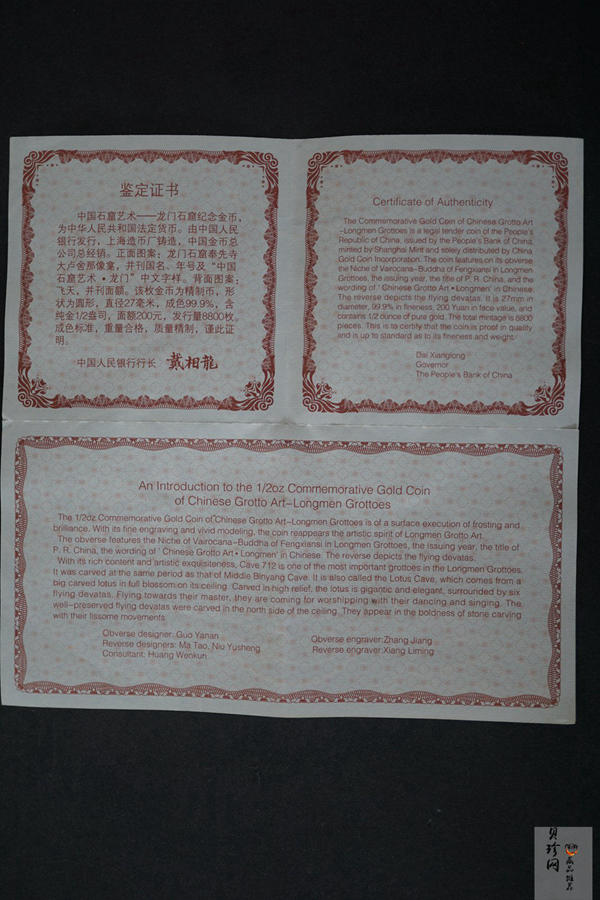 鉴定证书
中国石窟艺术——龙门石窟纪念金币，
为中华人民共和国法定货币。由中国人民
银行发行，上海造币厂铸造，中国金币总
公司总经销。正面图案：龙门石窟奉先寺
大卢舍那像龛，并刊国名、年号及“中国
石窟艺术·龙门”中文字样。背面图案：
飞天，并刊面额。该枚金币为精制币，形
状为圆形，直径27毫米，成色99.9%，含
纯金1/2盎司，面额200元，发行量8800枚。
成色标准，重量合格，质量精制，谨此证
明。
中国人民银行行长 戴相龍
Certificate of Authenticity
The Commemorative Gold Coin of Chinese Grotto Art
-Longmen Grottoes is a legal tender coin of the People's
Republic of China, issued by the People's Bank of China,
minted by Shanghai Mint and solely distributed by China
Gold Coin Incorporation. The coin features on its obverse
the Niche of Vairocana-Buddha of Fengxiansi in Longmen
Grottoes, the issuing year, the title of P. R. China, and the
wording of ' Chinese Grotto Art•Longmen' in Chinese.
The reverse depicts the flying devatas. It is 27mm in
diameter, 99.9% in fineness, 200 Yuan in face value, and
contains 1/2 ounce of pure gold. The total mintage is 8800
pieces. This is to certify that the coin is proof in quality
and is up to standard as to its fineness and weight.
Dai Xianglong
Governor
The People's Bank of China
An Introduction to the 1/2oz Commemorative Gold Coin
of Chinese Grotto Art-Longmen Grottoes
The 1/2oz Commemorative Gold Coin of Chinese Grotto Art-Longmen Grottoes is of a surface execution of frosting and
brilliance. With its fine engraving and vivid modeling, the coin reappears the artistic spirit of Longmen Grotto Art.
The obverse features the Niche of Vairocana-Buddha of Fengxiansi in Longmen Grottoes, the issuing year, the title of
P. R. China, the wording of ' Chinese Grotto Art•Longmen' in Chinese. The reverse depicts the flying devatas.
With its rich content and artistic exquisiteness, Cave 712 is one of the most important grottoes in the Longmen Grottoes.
It was carved at the same period as that of Middle Binyang Cave. It is also called the Lotus Cave, which comes from a
big carved lotus in full blossom on its ceiling. Carved in high relief, the lotus is gigantic and elegant, surrounded by six
flying devatas. Flying towards their master, they are coming for worshipping with their dancing and singing. The
well-preserved flying devatas were carved in the north side of the ceiling. They appear in the boldness of stone carving
with their lissome movements.
Obverse designer: Guo Yanan
Reverse designers: Ma Tao, Niu Yusheng
Consultant: Huang Wenkun
Obverse engraver:Zhang Jiang
Reverse engraver:Xiang Liming
贝珍网
藏品推荐